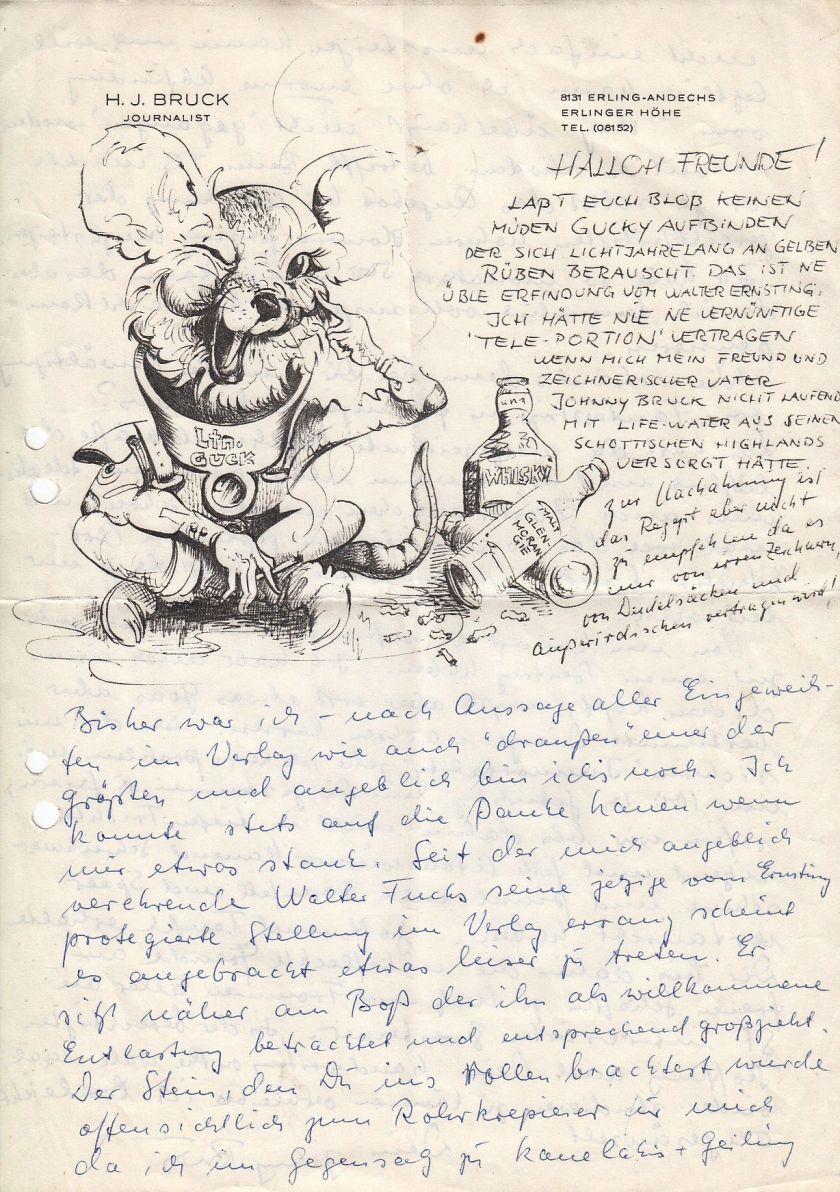 H. J. BRUCK
JOURNALIST
8131 ERLING-ANDECHS
ERLINGER HÖHE
TEL. (08152)
HALLOH FREUNDE!
LAßT EUCH BLOß KEINEN
MÜDEN GUCKY AUFBINDEN
DER SICH LICHTJAHRELANG AN GELBEN
RÜBEN BERAUSCHT. DAS IST NE
ÜBLE ERFINDUNG VOM WALTER ERNSTING.
ICH HÄTTE NIE NE VERNÜNFTIGE
'TELE-PORTION' VERTRAGEN
WENN MICH MEIN FREUND UND
ZEICHNERISCHER VATER
JOHNNY BRUCK NICHT LAUFEND
MIT LIFE-WATER AUS SEINEN
SCHOTTISCHEN HIGHLANDS
VERSORGT HÄTTE.
zur Nachahmung ist
das Rezept aber nicht
zu empfehlen da es
nur von irren Zeichnern,
von Dudelsäcken und
außerirdischen vertragen wird!
Ltn.
GUCK
WHISKY
MALT
GLEN-
MORAN-
GIE
Bisher war ich – nach Aussage aller Eingeweih-
ten im Verlag wie auch "draußen" einer der
größten und angeblich bin ichs noch. Ich
konnte stets auf die Pauke hauen wenn
mir etwas stank. Seit der mich angeblich
verehrende Walter Fuchs seine jetzige vom Ernsting
protegierte Stellung im Verlag errang scheint
es angebracht etwas leiser zu treten. Er
sitzt näher am Boß der ihn als willkommene
Entlastung betrachtet und entsprechend großzieht.
Der Stein, den Du ins Rollen brachtest wurde
offensichtlich zum Rohrkrepierer für mich
da ich im Gegensatz zu